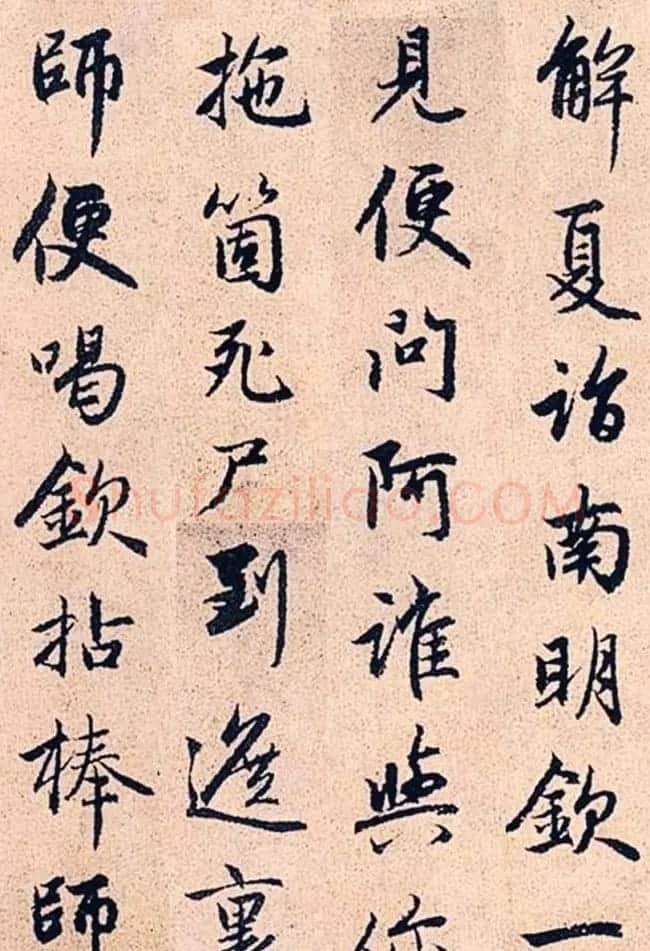 解夏詣南明欽一
見便問阿誰與你
拖箇死尸到遮裏
師便喝欽拈棒師
Shufaziliao.COM